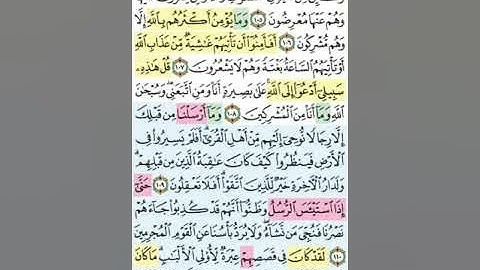 وَهُمْ عَنْهَا مُعْرِضُونَ ١٠٥ وَمَا يُؤْمِنُ أَكْثَرُهُم بِاللَّهِ إِلَّا
وَهُم مُّشْرِكُونَ ١٠٦ أَفَأَمِنُوٓا۟ أَن تَأْتِيَهُمْ غَٰشِيَةٌ مِّنْ عَذَابِ اللَّهِ
أَوْ تَأْتِيَهُمُ السَّاعَةُ بَغْتَةً وَهُمْ لَا يَشْعُرُونَ ١٠٧ قُلْ هَٰذِهِۦ
سَبِيلِىٓ أَدْعُوٓا۟ إِلَى اللَّهِ عَلَىٰ بَصِيرَةٍ أَنَا۠ وَمَنِ اتَّبَعَنِى وَسُبْحَٰنَ
اللَّهِ وَمَآ أَنَا۠ مِنَ الْمُشْرِكِينَ ١٠٨ وَمَآ أَرْسَلْنَا مِن قَبْلِكَ
إِلَّا رِجَالًا نُّوحِىٓ إِلَيْهِم مِّنْ أَهْلِ الْقُرَىٰٓ أَفَلَمْ يَسِيرُوا۟ فِى
الْأَرْضِ فَيَنظُرُوا۟ كَيْفَ كَانَ عَٰقِبَةُ الَّذِينَ مِن قَبْلِهِمْ
وَلَدَارُ الْءَاخِرَةِ خَيْرٌ لِّلَّذِينَ اتَّقَوْا۟ أَفَلَا تَعْقِلُونَ ١٠٩ حَتَّىٰٓ
إِذَا اسْتَيْـَٔسَ الرُّسُلُ وَظَنُّوٓا۟ أَنَّهُمْ قَدْ كُذِبُوا۟ جَآءَهُمْ
نَصْرُنَا فَنُجِّىَ مَن نَّشَآءُ وَلَا يُرَدُّ بَأْسُنَا عَنِ الْقَوْمِ الْمُجْرِمِينَ
١١٠ لَقَدْ كَانَ فِى قَصَصِهِمْ عِبْرَةٌ لِّأُو۟لِى الْأَلْبَٰبِ مَا كَانَ